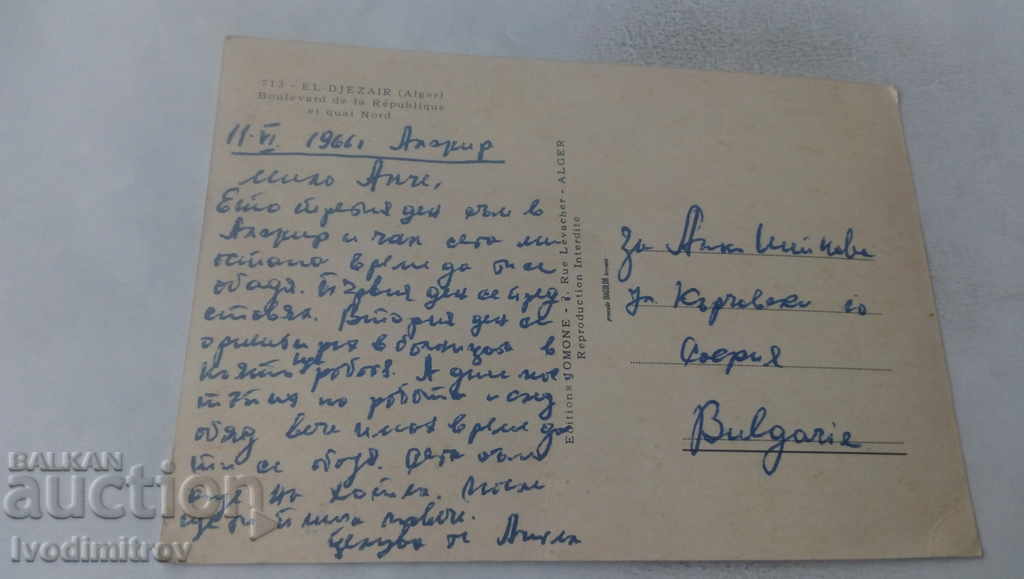 713 - EL-DJEZAIR (Alger)
Boulevard de la République
et quai Nord
11.VI 1966г Алжир
Мила Анче,
Ето третия ден съм в
Алжир и чак сега ми
остана време да ти се
обадя. Първия ден се пред
ставях. Втория ден се
ориентирах в болницата в
която ще работя. А днес пос
тъпих на работа и след
обяд вече имах време да
ти се обадя. Сега съм
още на хотел. После
ще ти пиша повече.
Целува те Ангел
Editions JOMONE - 7, Rue Levacher - ALGER
Reproduction Interdite
За Анка
ул Кърчовски 10
София
Bulgarie
BALKAN
auction
Ivodimitrov